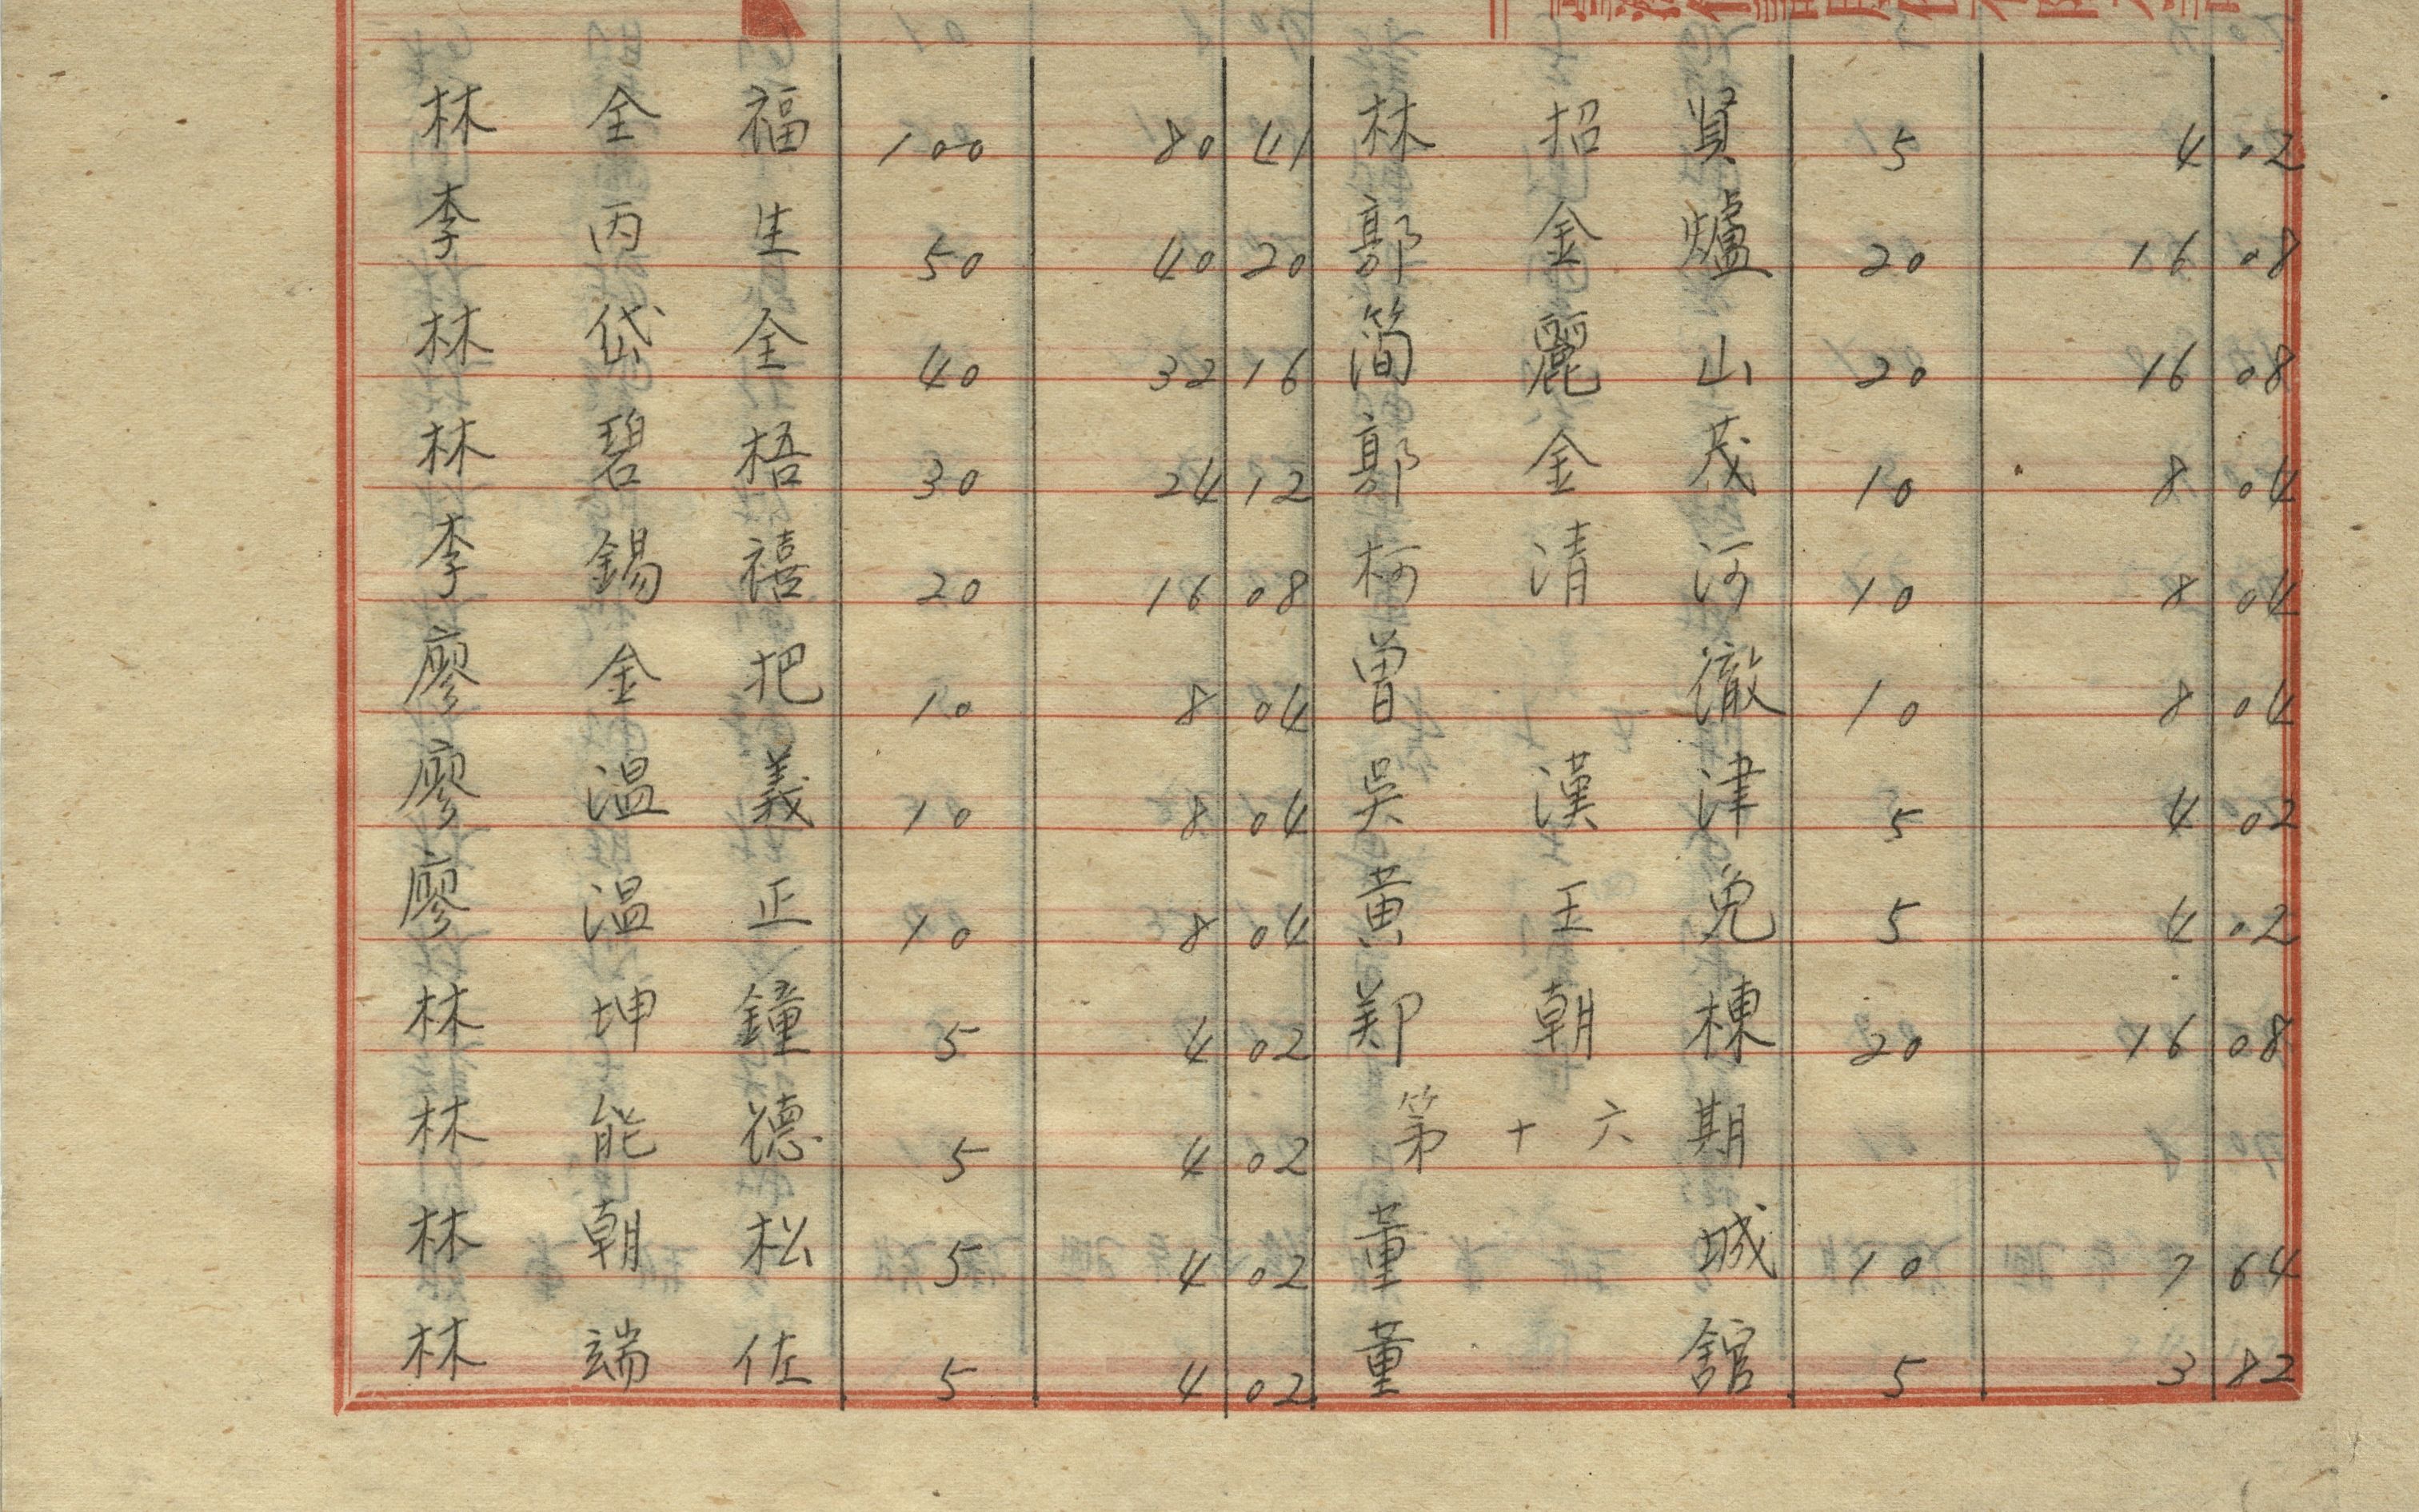 林全福 100 80 41 林招賢 5 4 02
李丙生 50 40 20 郭金爐 20 16 08
林岱全 40 32 16 简麗山 20 16 08
林碧梧 30 24 12 郭金茂 10 8 04
李錫禧 20 16 08 柯清河 10 8 04
廖金把 10 8 04 曾徹 10 8 04
廖温義 10 8 04 吳漢津 5 4 02
廖温正 10 8 04 黃王兔 5 4 02
林坤鐘 5 4 02 郑朝棟 20 16 08
林能德 5 4 02 第十六期
林朝松 5 4 02 董城 10 7 64
林端佐 5 4 02 董舘 5 3 82